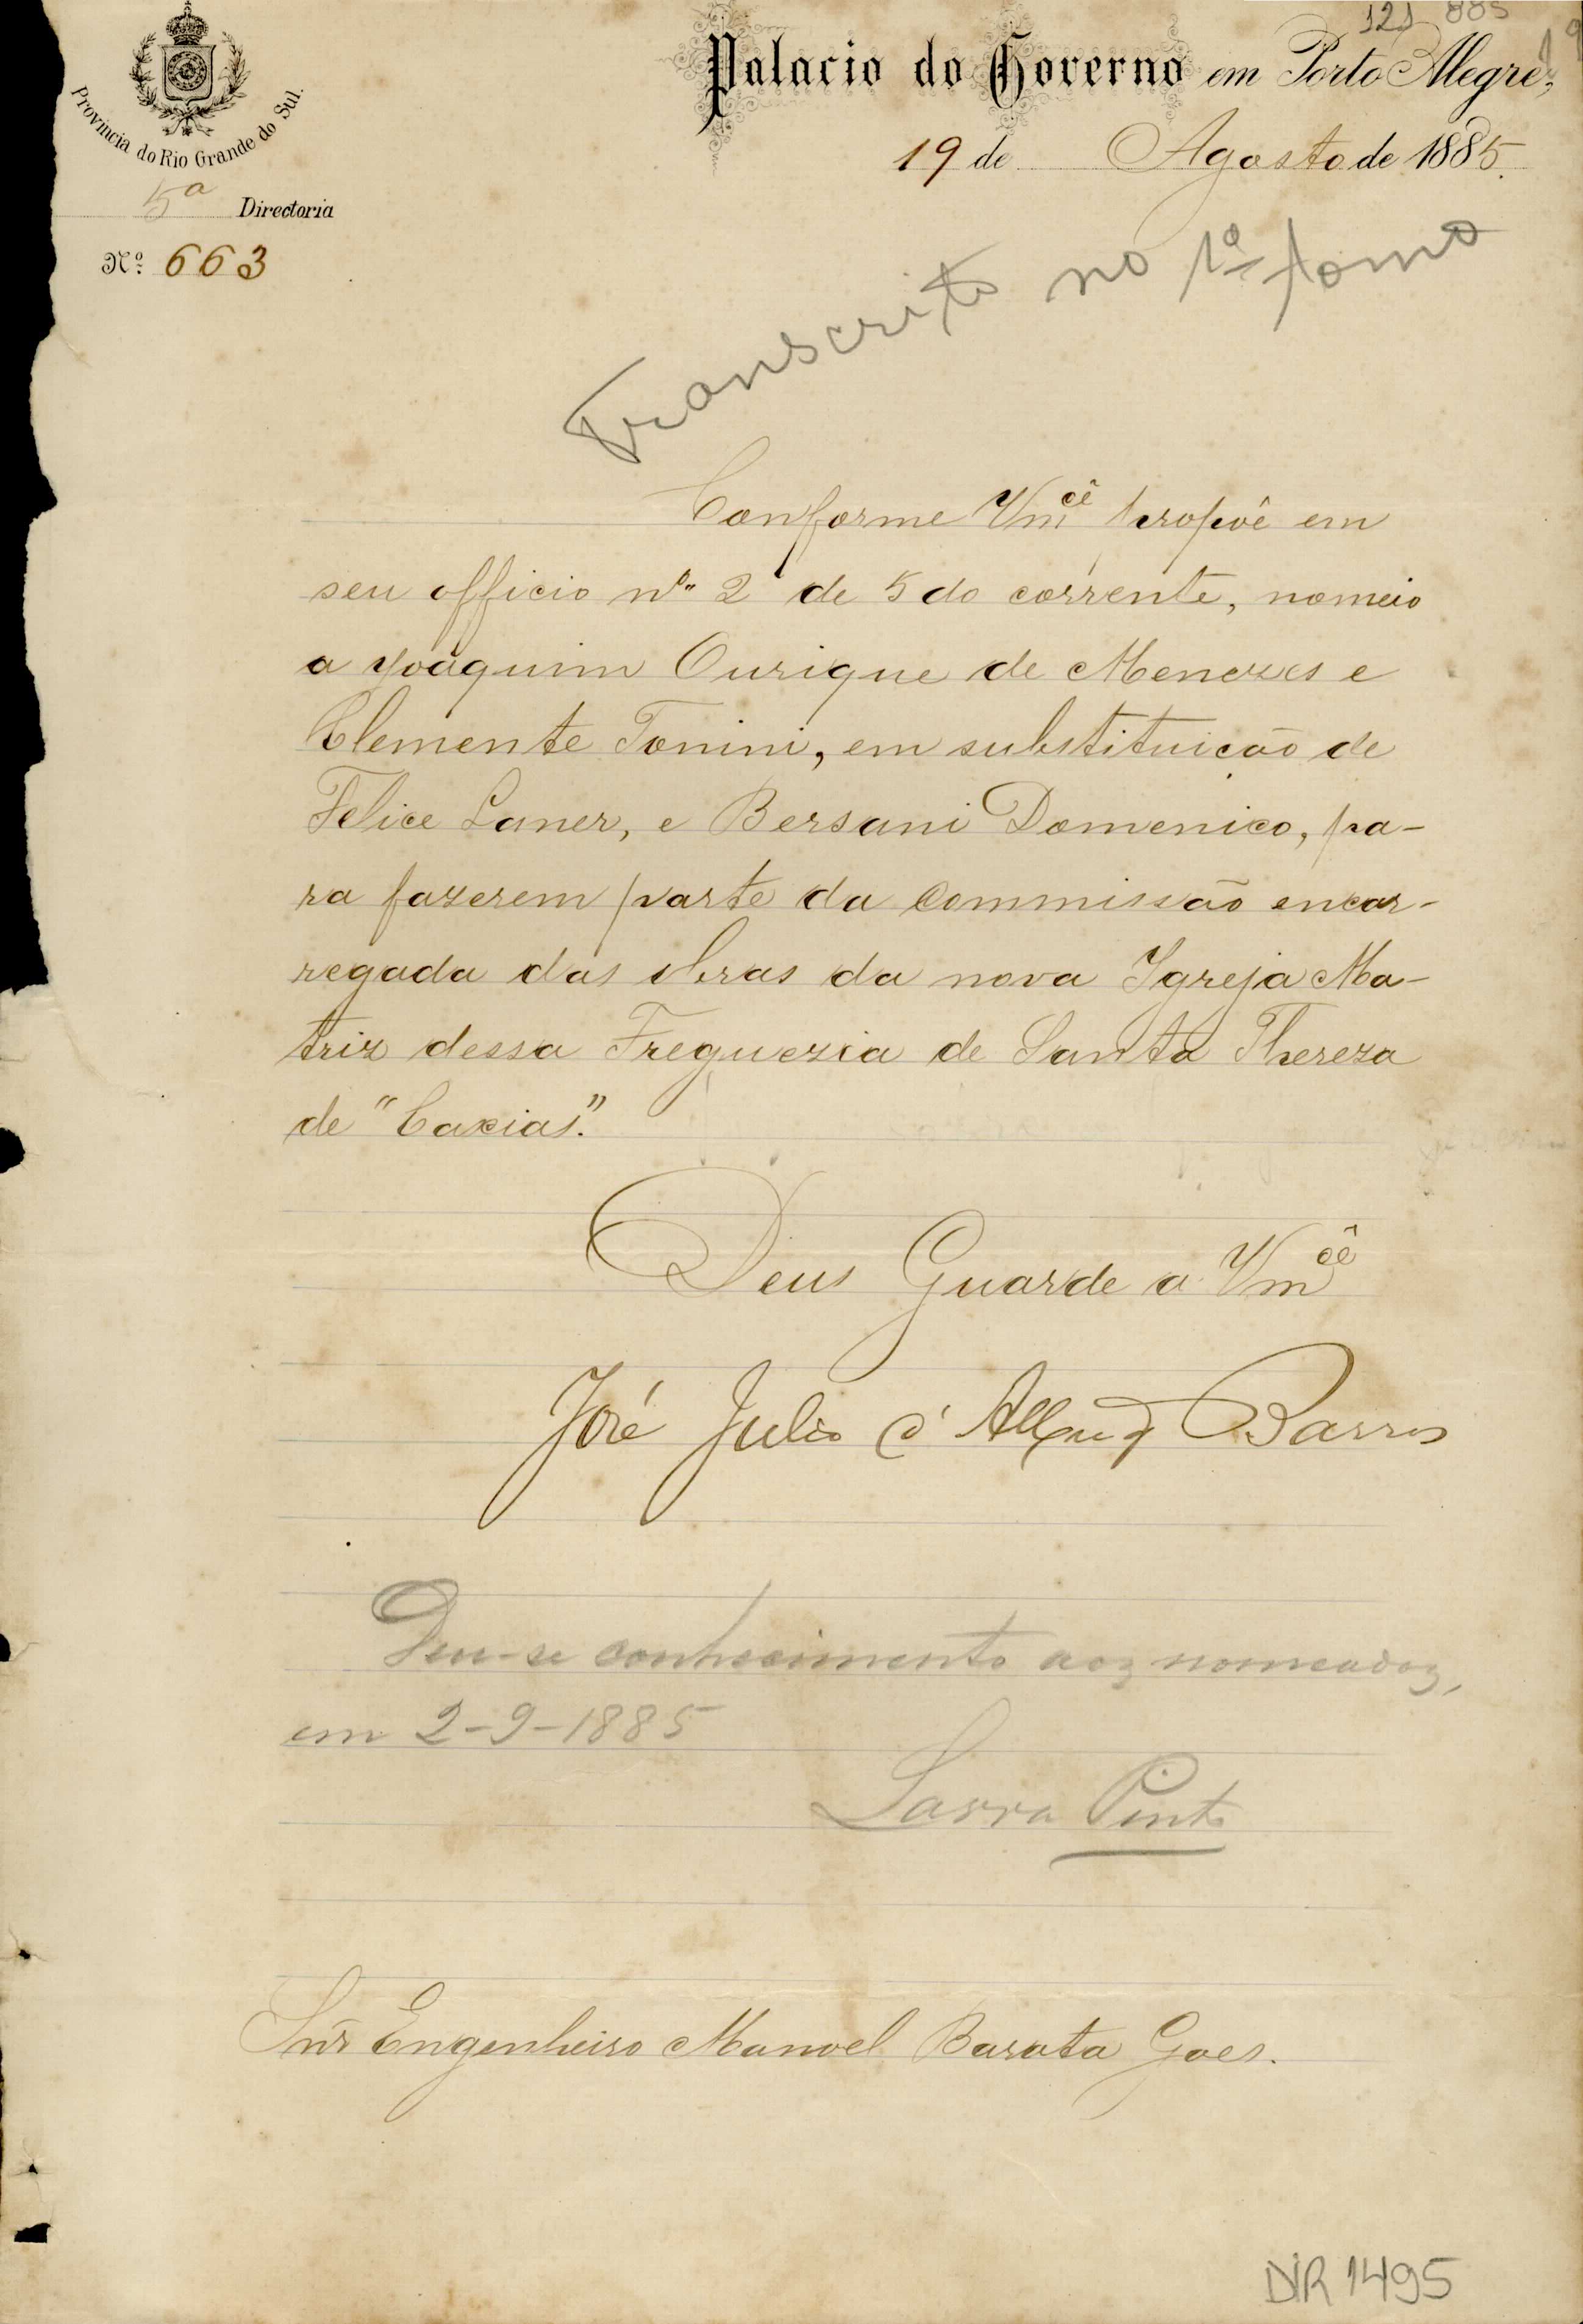 121 885
Provincia do Rio Grande do Sul.
Palacio do Governo em Porto Alegre,
19 de Agosto de 1885.
5ª Directoria
Nº 663
Transcrito no 1º tomo
Conforme Vmcê propôe em
seu officio nº 2 de 5 do corrente, nomeio
a Joaquim Ourique de Menezes e
Clemente Tonini, em substituicão de
Felice Laner, e Bersani Domenico, pa-
ra fazerem parte da commissão encar-
regada das obras da nova Igreja Ma-
triz dessa Freguezia de Santa Thereza
de "Caxias".
Deus Guarde a Vmcê
José Julio d'Albuqᵉ Barros
Deu-se conhecimento aos nomeados,
em 2-9-1885
Pinto
Snr Engenheiro Manoel Barata Goes.
DIR 1495